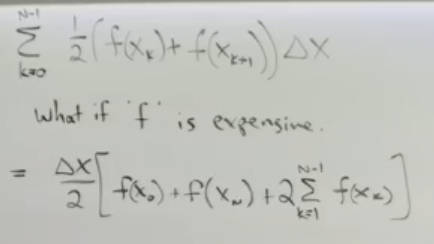 \sum_{k=0}^{N-1} \frac{1}{2} ( f(x_k) + f(x_{k+1}) ) \Delta x
what if 'f' is expensive.
= \frac{\Delta x}{2} [ f(x_0) + f(x_N) + 2 \sum_{k=1}^{N-1} f(x_k) ]